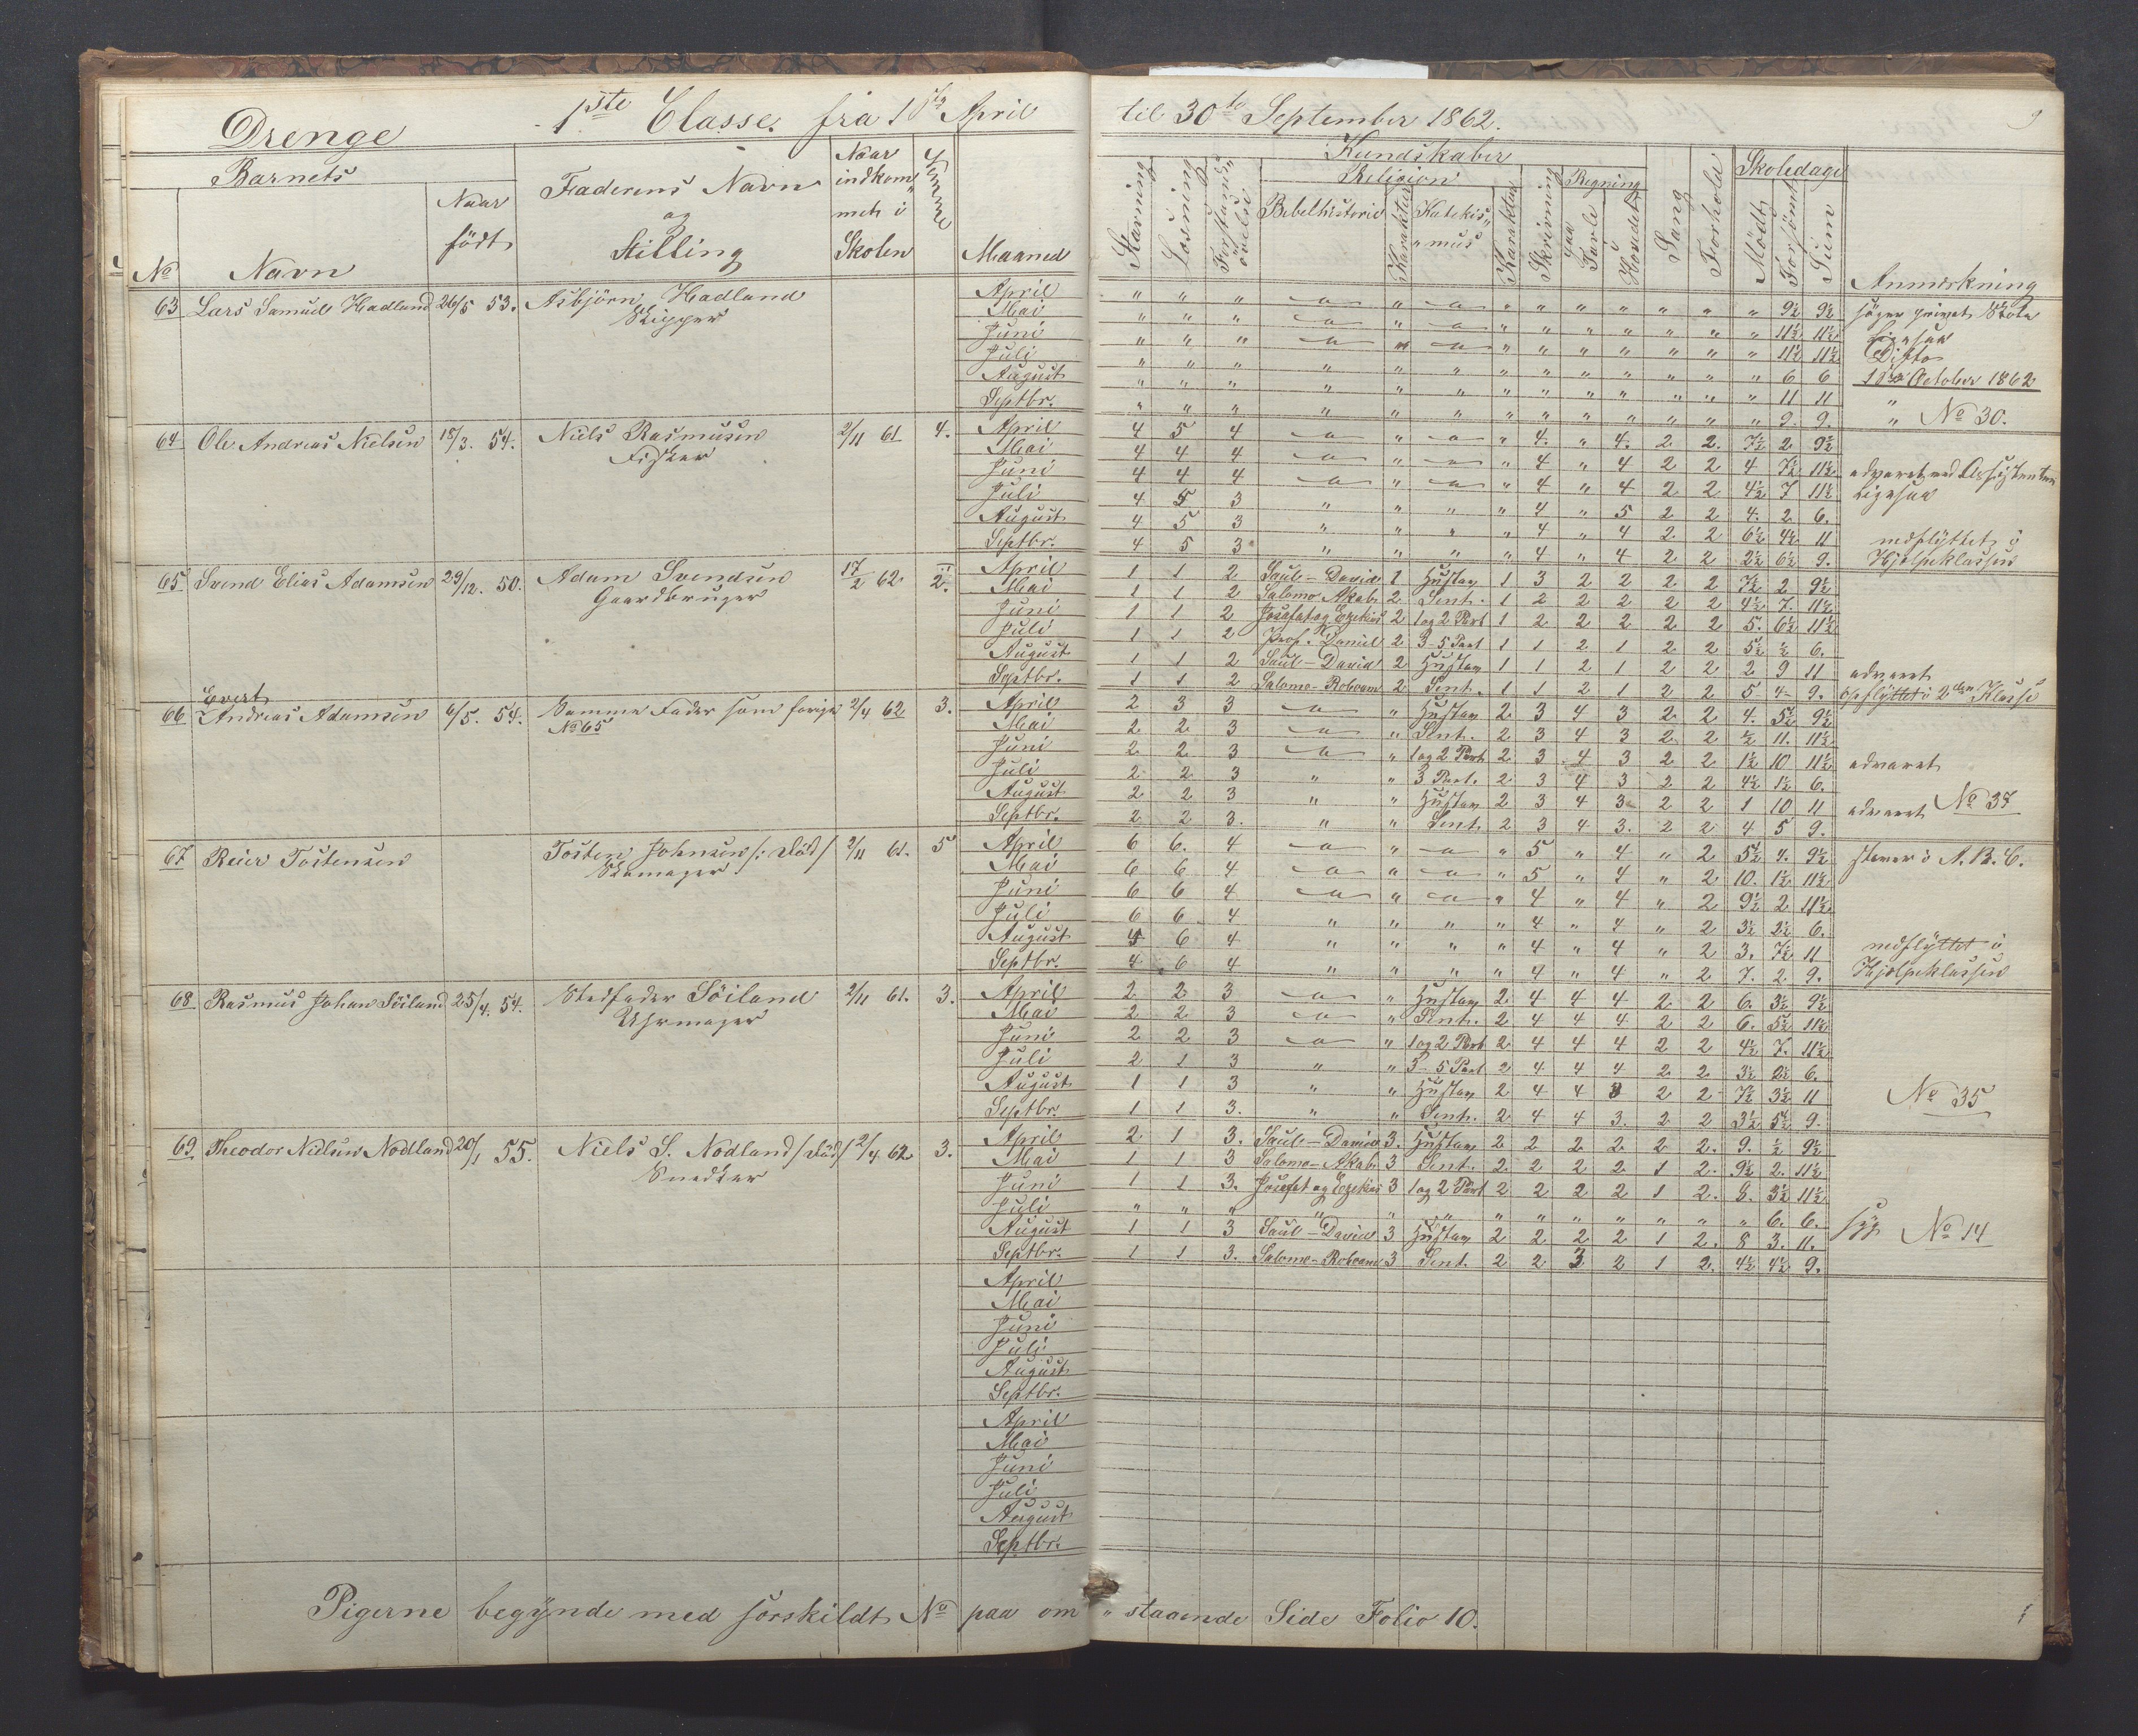 Drenge 1ste Classe. fra 1ste April til 30te September 1862. 9
Barnets
No Navn Naar födt Faderens Navn og Stilling Naar indkommet i Skolen Evne Maaned
Stavning Læsning Forstandsövelse Kundskaber Religion Bibelhistorie Karakter Katekismus Karakter Skrivning Regning paa Tavle Hovedet Sang Forhold Skoledage Mödt Forsömt Sum Anmærkning
63 Lars Samuel Hadland 26/5 53. Asbjörn Hadland Skipper
April " " " a " a " " " " " " " 9½ 9½ söger privat Skole
Mai " " " a " a " " " " " " " 11½ 11½ Ligesaa
Juni " " " a " a " " " " " " " 11½ 11½ Ditto
Juli " " " " " " " " " " " " " 6 6 1ste October 1862
August " " " " " " " " " " " " " 11 11 "
Septbr. " " " " " " " " " " " " " 9. 9. " No 30.
64 Ole Andreas Nielsen 18/3. 54. Niels Rasmusen Fisker 2/11 61 4.
April 4 5 4 a " a " 4. " 4. 2 2. 7½ 2 9½
Mai 4 4 4 a " a " 4 " 4 2 2 4 7½ 11½ advaret ved Assistenten
Juni 4 4 4 a " a " 4 " 4 2 2 4½ 7 11½ Ligesaa
Juli 4 5 3 " " " " 4 " 5 2 2 4. 2 6.
August 4 5 3 " " " " 4 " 4 2 2 6½ 4½ 11 nedflyttet i
Septbr. 4 5 3 " " " " 4 " 4 2 2 2½ 6½ 9. Hjelpeklassen
65 Svend Elias Adamsen 29/12. 50. Adam Svendsen Gaardbruger 17/2 62 2.
April 1 1 2 Saul - David 1 Hustav 1 3 2 2 2 2 7½ 2 9½
Mai 1 1 2 Salomo-Akab. 2 Sent. 1 2 2 2 2 2 4½ 7. 11½
Juni 1 1 2 Josafat og Ezekias 2 1 og 2 Part 1 2 2 2 2 2 5. 6½ 11½
Juli 1 1 2 Prof. Daniel 2 3-5 Part 1 1 2 1 2 2 5½ ½ 6.
August 1 1 2 Saul - David 2 Hustav 1 1 2 1 2 2 2 9 11 advaret
Septbr. 1 1 2 Salomo-Roboam 2 Sent. 1 1 2 1 2 2 5 4 9. opflyttet i 2den Klasse
66 Evert Andreas Adamsen 6/5. 54. Samme Fader som forige No 65 2/4 62 3.
April 2 3 3 a " Hustav 2 3 4 3 2 2 4. 5½ 9½
Mai 2 2 3 a " Sent. 2 3 4 3 2 2 ½ 11. 11½
Juni 2 2 3 a " 1 og 2 Part. 2 3 4 3 2 2 1½ 10 11½ advaret
Juli 2 2 3 " " 3 Part. 2 3 4 3 2 2 4½ 1½ 6.
August 2 2 3 " " Hustav 2 3 4 3 2 2 1 10 11 advaret No 37
Septbr. 2 2 3. " " Sent. 2 3 4 3. 2 2 4 5 9.
67 Reier Tostensen Tosten Johnsen /: död / Skomager 2/11 61. 5
April 6 6. 4 a " a " 5 " 4 " 2 5½ 4. 9½ staver i A.B.C.
Mai 6 6 4 a " a " 5 " 4 " 2 10. 1½ 11½
Juni 6 6 4 a " a " 4 " 4 " 2 9½ 2 11½
Juli 6 6 4 " " " " 4 " 4 " 2 3½ 2½ 6.
August 4 6 4 " " " " 4 " 4 " 2 3. 7½ 11 nedflyttet i
Septbr. 4 6 4 " " " " 4 " 4 " 2 7. 2 9. Hjelpeklassen
68 Rasmus Johan Söiland 25/4. 54. Stedfader Söiland Uhrmager 2/11 61. 3.
April 2 2 3 a " Hustav 2 4 4 4 2 2 6. 3½ 9½
Mai 2 2 3 a " Sent. 2 4 4 4 2 2 6. 5½ 11½
Juni 2 2 3 a " 1 og 2 Part 2 4 4 4 2 2 4½ 7. 11½
Juli 2 1 3 " " 3-5 Part 2 4 4 4 2 2 3½ 2½ 6.
August 1 1 3 " " Hustav 2 4 4 3 2 2 7½ 3½ 11 No 35
Septbr. 1 1 3. " " Sent. 2 4 4 3. 2 2 3½ 5½ 9.
69 Theodor Nielsen Nodland 20/1 55. Niels S. Nodland / död / Snedker 2/4 62 3.
April 2 1 3. Saul - David 3. Hustav 2 2 2 2 2 2. 9. ½ 9½
Mai 1 1 3 Salomo-Akab. 3 Sent. 2 2 2 2 1 2. 9½ 2. 11½
Juni 1 1 3. Josafat og Ezekias 3 1 og 2 Part 2 2 2 2 1 2. 8. 3½ 11½
Juli " " " " " " " " " " " " " 6. 6. syg No 14
August 1 1 3 Saul - David 3 Hustav 2 2 2 2 1 2. 8 3. 11.
Septbr. 1 1 3. Salomo-Roboam 3 Sent. 2 2 3 2 1 2. 4½ 4½ 9.
April
Mai
Juni
Juli
August
Septbr.
April
Mai
Juni
Juli
August
Septbr.
Pigerne begynde med særskildt No paa om " staaende Side Folio 10.